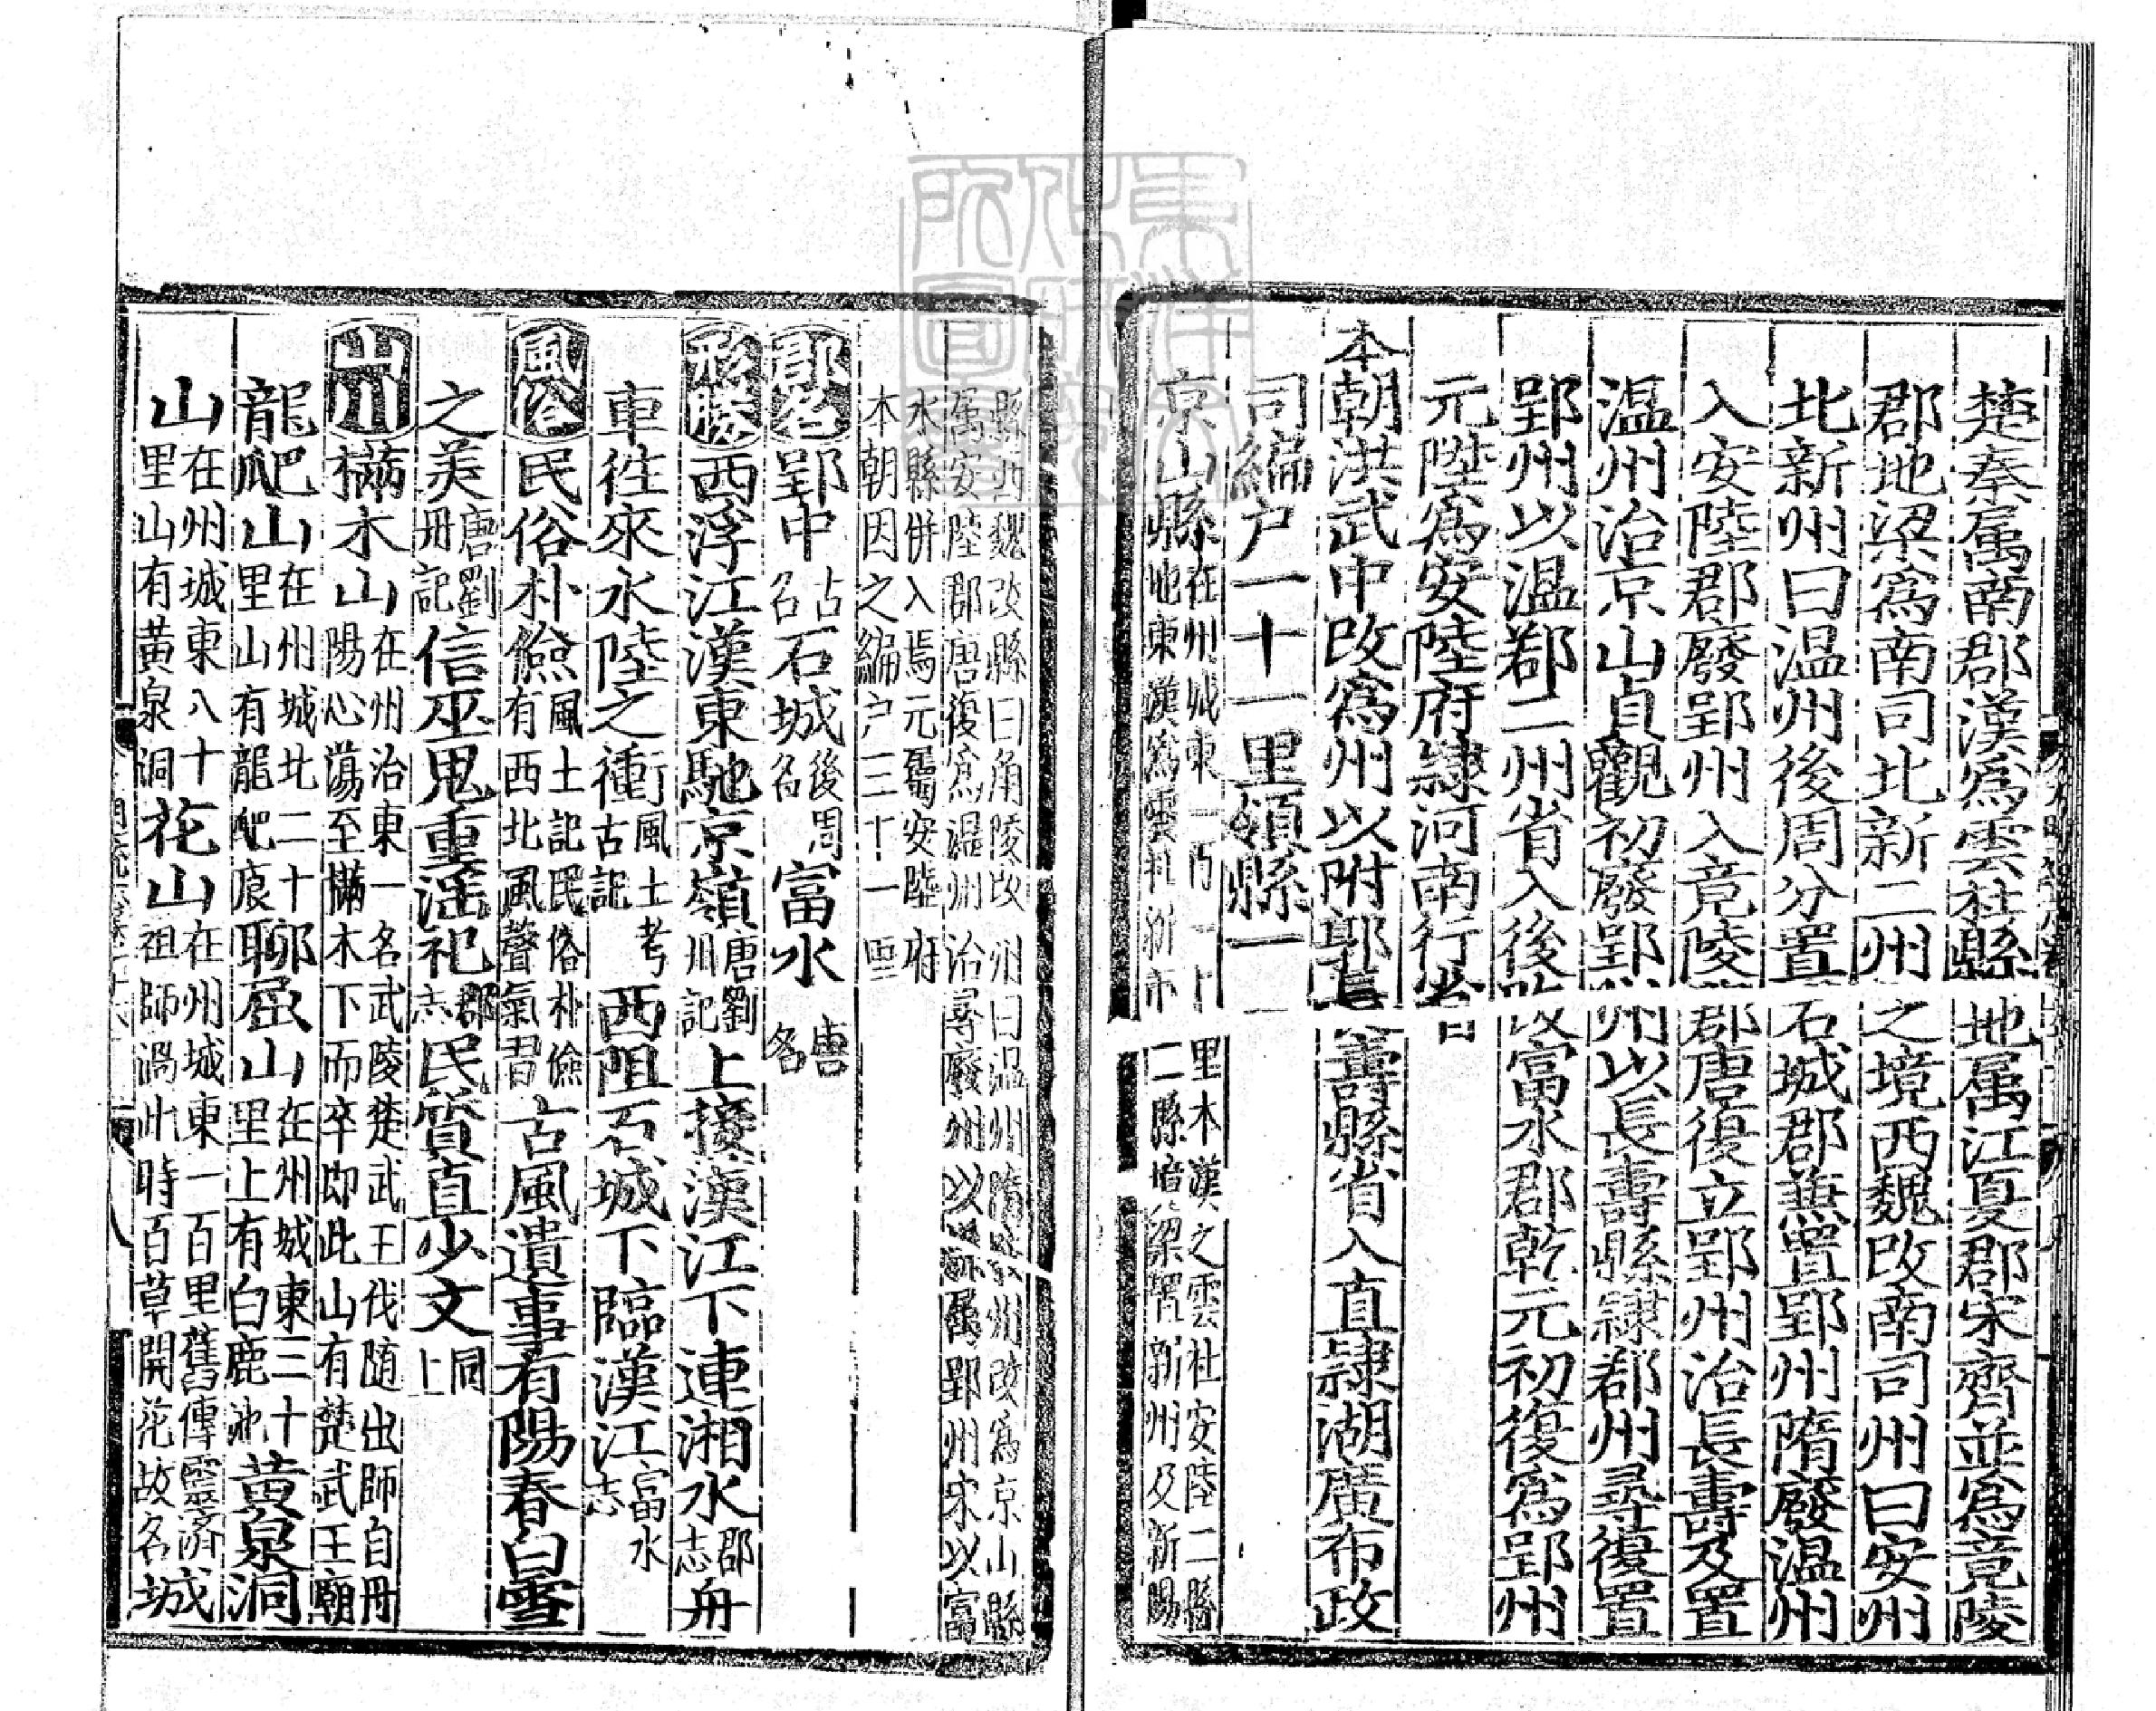 楚秦属南郡漢為雲杜縣地属江夏郡宋齊並為竟陵
郡地梁為南司北新二州之境西魏改南司州曰安州
北新州曰温州後周分置石城郡兼置郢州隋廢温州
入安陸郡廢郢州入竟陵郡唐復立郢州治長壽及置
温州治京山貞觀初廢郢州以長壽縣隷鄀州尋復置
郢州以温鄀二州省入後改富水郡乾元初復為郢州
元陞為安陸府隷河南行省
本朝洪武中改為州以附郭長壽縣省入直隷湖廣布政
司編户一十一里領縣一
京山縣在州城東一百一十里本漢之雲杜安陸二縣
地東漢為雲杜新市二縣境梁置新州及新陽
縣西魏改縣曰角陵改州曰温州隋改為京山縣
属安陸郡唐復為温州治尋廢州以縣属郢州宋以富
水縣併入焉元屬安陸府
本朝因之編户三十一里
郡名郢中古名石城後周名富水唐名
形勝西浮江漢東馳京嶺唐劉㓝記上接漢江下連湘水郡志舟
車往來水陸之衝風土考古記西阻石城下臨漢江富水志
風俗民俗朴儉風土記民俗朴儉有西北風聲氣習古風遺事有陽春白雪
之美唐劉冊記信巫鬼重淫祀郡志民質直少文同上
山川樠木山在州治東一名武陵楚武王伐随出師自冊
陽心蕩至樠木下而卒即此山有楚武王廟
龍爬山在州城北二十里山有龍爬痕聊屈山在州城東三十里上有白鹿池黄泉洞
山在州城東八十里山有黄泉洞花山在州城東一百里舊傳靈濟祖師過此時百草開花故名城